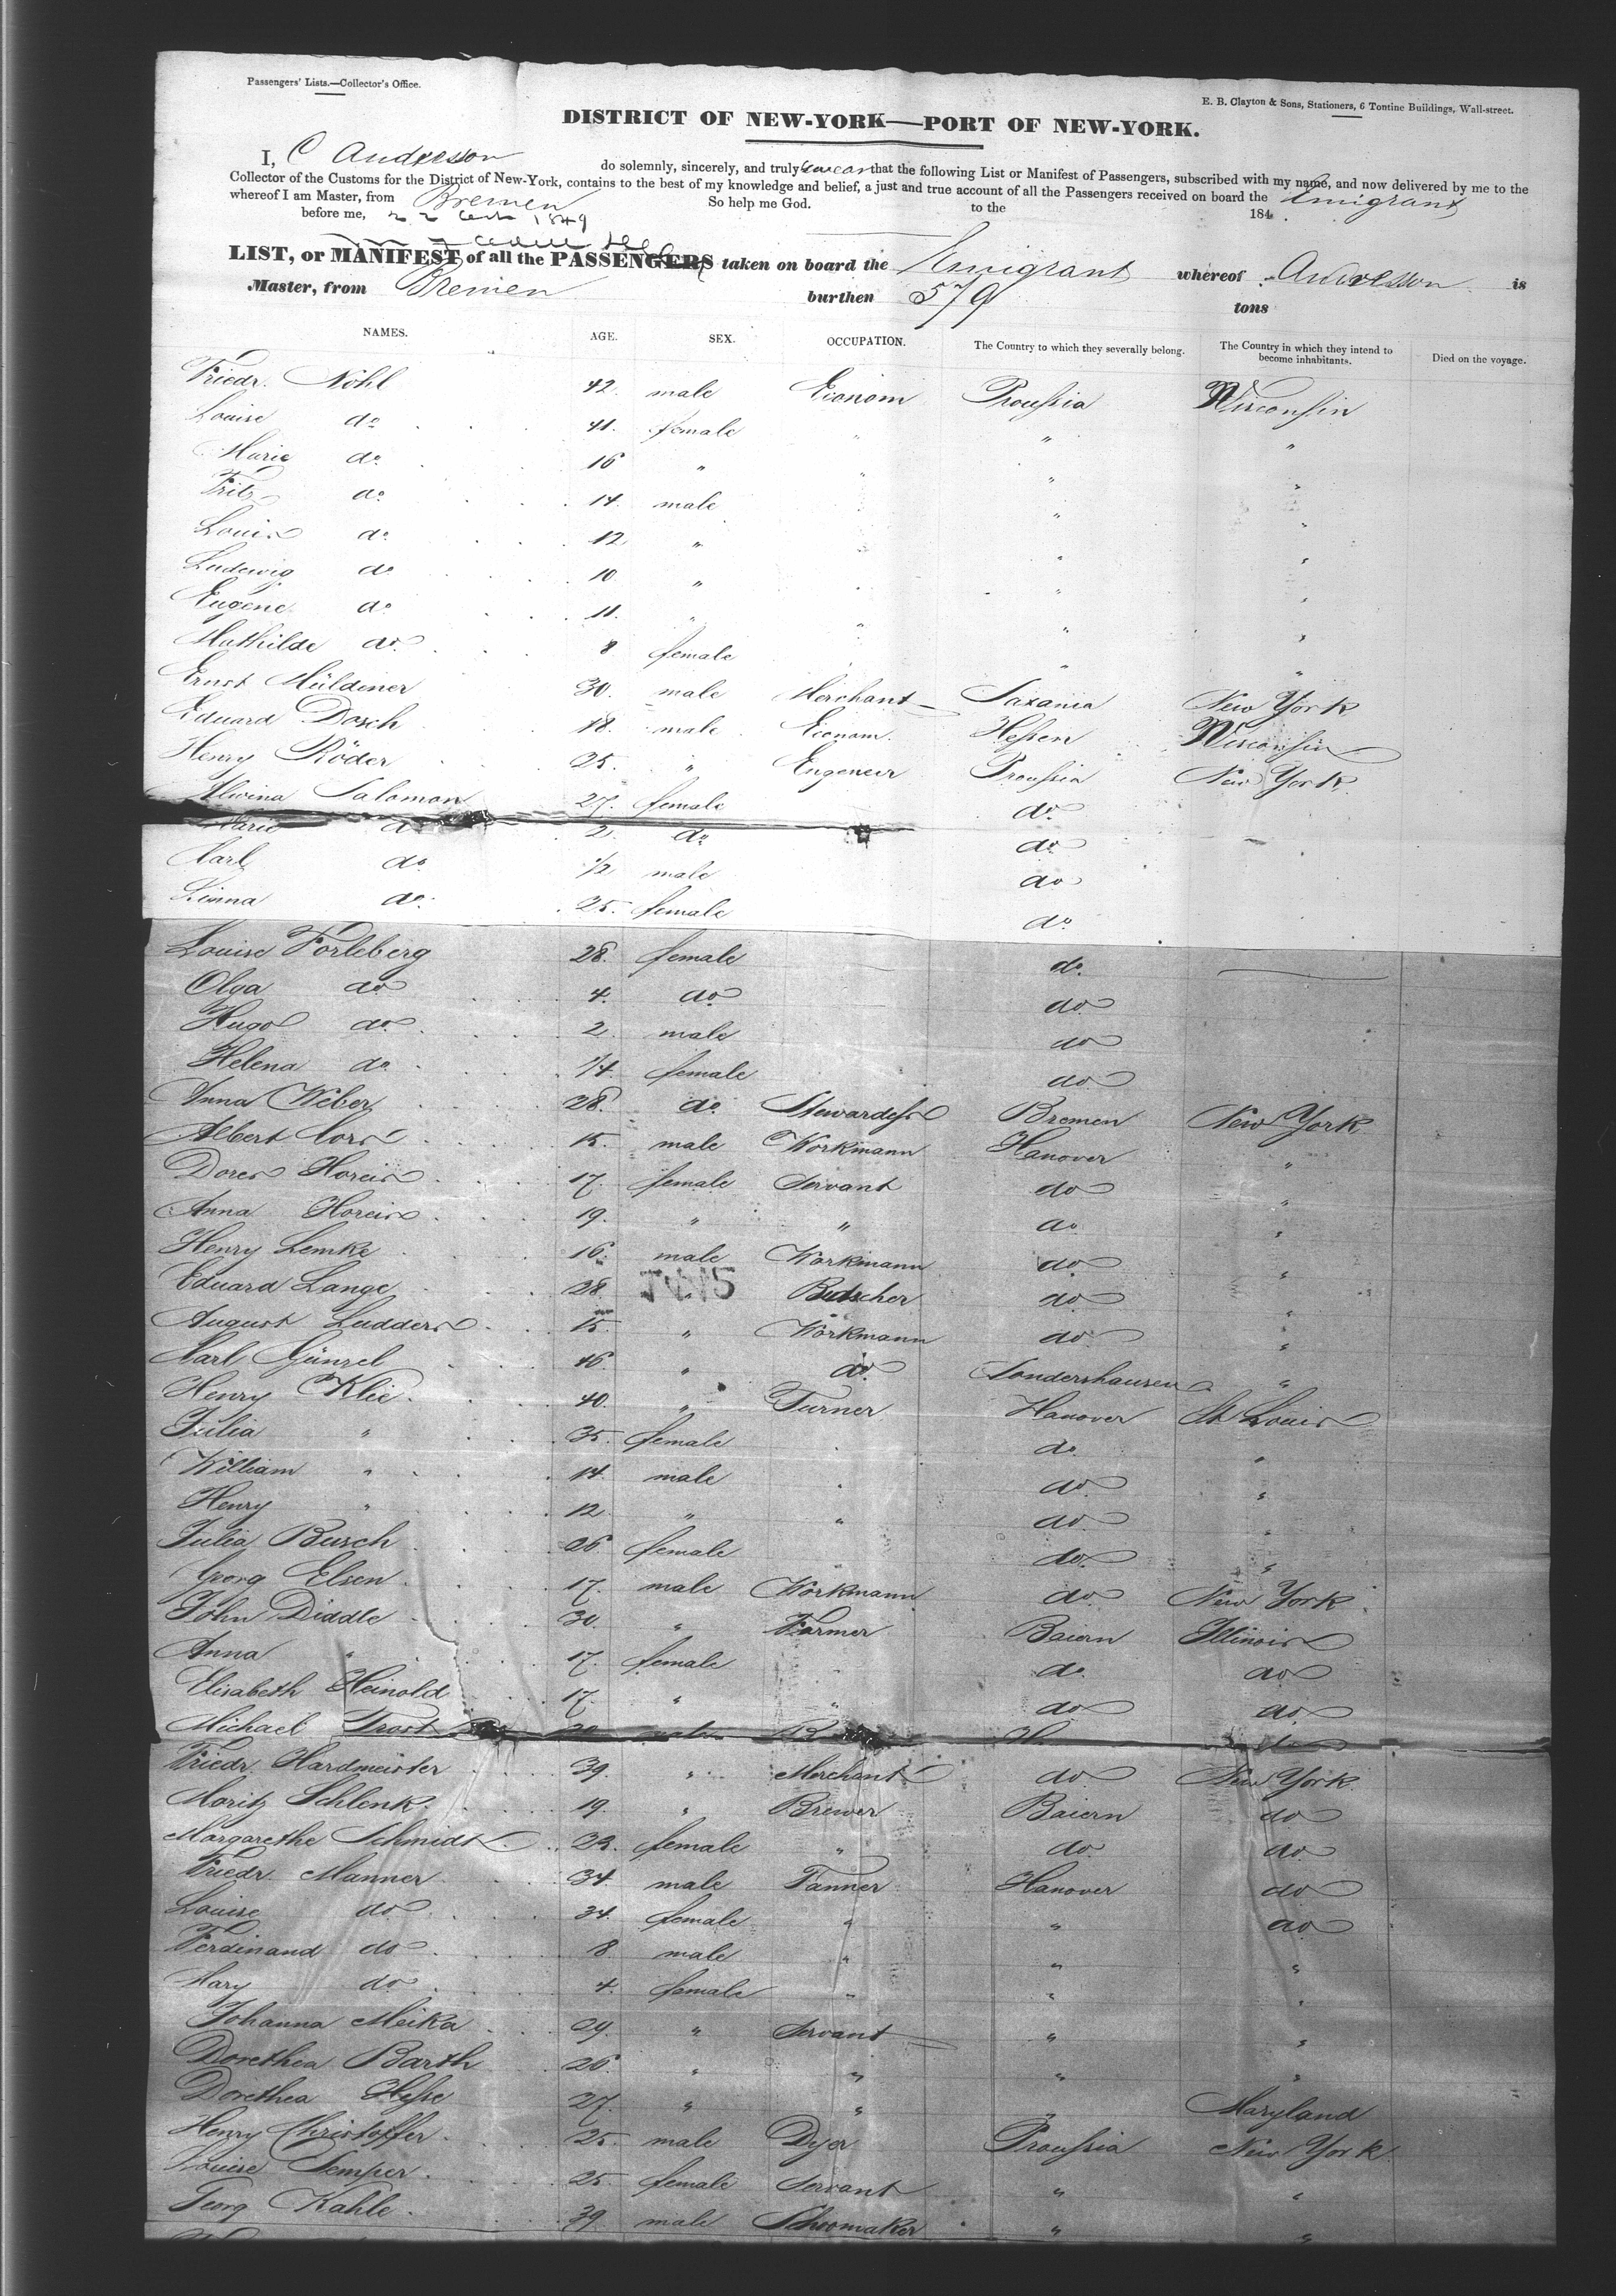 Passengers' Lists.—Collector's Office.
E. B. Clayton & Sons, Stationers, 6 Tontine Buildings, Wall-street.
DISTRICT OF NEW-YORK—PORT OF NEW-YORK.
I, C Anderson do solemnly, sincerely, and truly swear that the following List or Manifest of Passengers, subscribed with my name, and now delivered by me to the
Collector of the Customs for the District of New-York, contains to the best of my knowledge and belief, a just and true account of all the Passengers received on board the Emigrant
whereof I am Master, from Bremen So help me God. to the 184
before me, 22 1849
LIST, or MANIFEST of all the PASSENGERS taken on board the Emigrant whereof Anderson is
Master, from Bremen burthen 579 tons
NAMES. AGE. SEX. OCCUPATION. The Country to which they severally belong. The Country in which they intend to become inhabitants. Died on the voyage.
Friedr. Nohl 42. male Econom Proussia Wisconsin
Louise do 41. female " " "
Marie do 16 " " " "
Fritz do 14. male " "
Louis do 12 " " "
Ludewig do 10 " " "
Eugene do 11. " " " "
Mathilde do 8 female " "
Ernst Müldener 30. male Merchant Saxania New York
Eduard Dosch 18. male Econom. Hessen Wisconsin
Henry Röder 25. " Engeneur Proussia New York
Alwina Salomon 27. female do
Marie do 2. do do
Karl do 1/2 male do
Linna do 25. female do
Louise Forleberg 28. female do
Olga do 4. do do
Hugo do 2 male do
Helena do 1/4. female do
Anna Weber 28. do Stewardess Bremen New York
Albert Cors 15. male Workmann Hanover "
Dores Horeis 17. female Servant do "
Anna Horeis 19. " " do "
Henry Lemke 16. male Workmann do "
Eduard Lange 28. " Butscher do "
August Ludders 15. " Workmann do "
Karl Günzel 46 " do Sondershausen "
Henry Klie 40. " Turner Hanover St Louis
Julia " 35. female do "
William " 14. male do "
Henry " 12 " " do "
Julia Busch 26 female do "
Georg Elsen 17. male Workmann do New York
John Diddle 30. " Farmer Baiern Illinois
Anna " 17. female do do
Elisabeth Heinold 17. " " do do
Michael Trost 20 male
Friedr. Hardmeister 39. " Merchant do New York
Moritz Schlenk 19. " Brewer Baiern do
Margarethe Schmidt 23. female " do do
Friedr. Manner 34. male Tanner Hanover do
Louise do 34. female " " do
Ferdinand do 8 male " " "
Mary do 4. female " " "
Johanna Meika 29. " Servant " "
Dorethea Barth 26. " " " "
Dorethea Hesse 27. " " " Maryland
Henry Christoffer 25. male Dyer Proussia New York
Louise Semper 25. female Servant " "
Georg Kahle 39. male Schoomaker " "